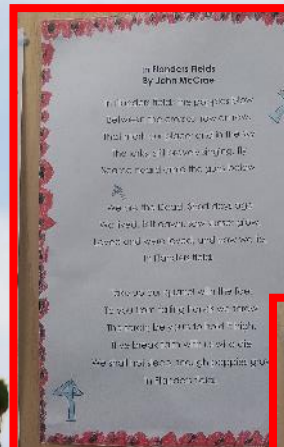 In Flanders Fields
By John McCrae
In Flanders fields the poppies blow
Between the crosses, row on row,
That mark our place; and in the sky
The larks, still bravely singing, fly
Scarce heard amid the guns below.
We are the Dead. Short days ago
We lived, felt dawn, saw sunset glow,
Loved and were loved, and now we lie
In Flanders fields.
Take up our quarrel with the foe:
To you from failing hands we throw
The torch; be yours to hold it high.
If ye break faith with us who die
We shall not sleep, though poppies grow
In Flanders fields.